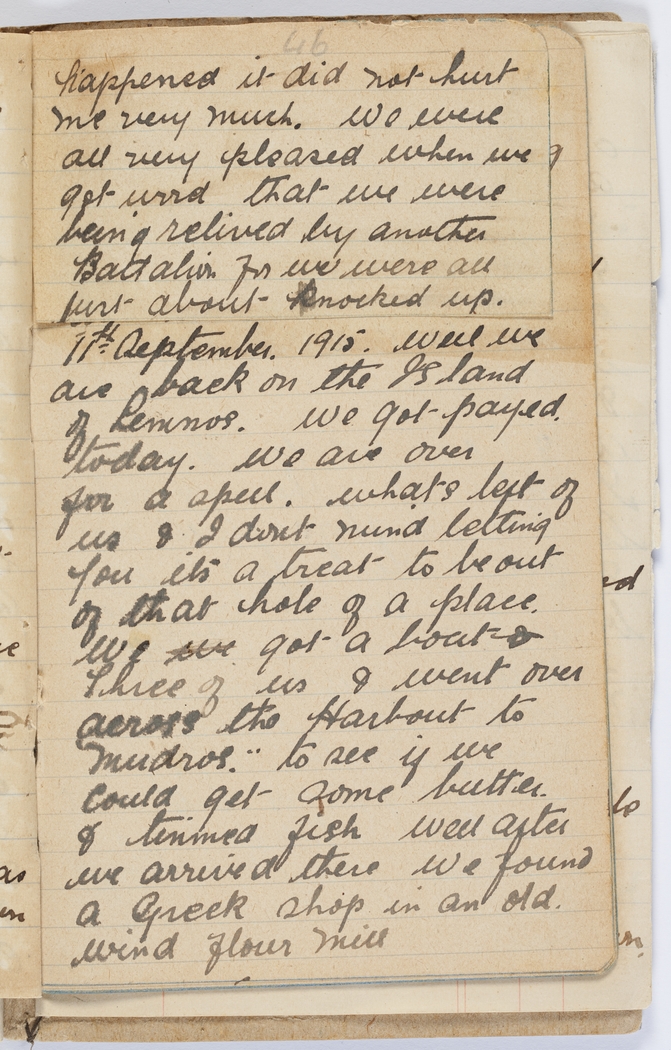 46
happened it did not hurt
me very much. We were
all very pleased when we
got word that we were
being relived by another
Battalion for we were all
just about knocked up.
11th September. 1915. Well we
are back on the Island
of Lemnos. We got payed.
today. We are over
for a spell. whats left of
us & I dont mind letting
you its a treat to be out
of that hole of a place.
We we got a boat &
three of us & went over
across the Harbour to
Mudros." to see if we
could get some butter.
& tinned fish well after
we arrived there we found
a Greek shop in an old.
wind flour mill